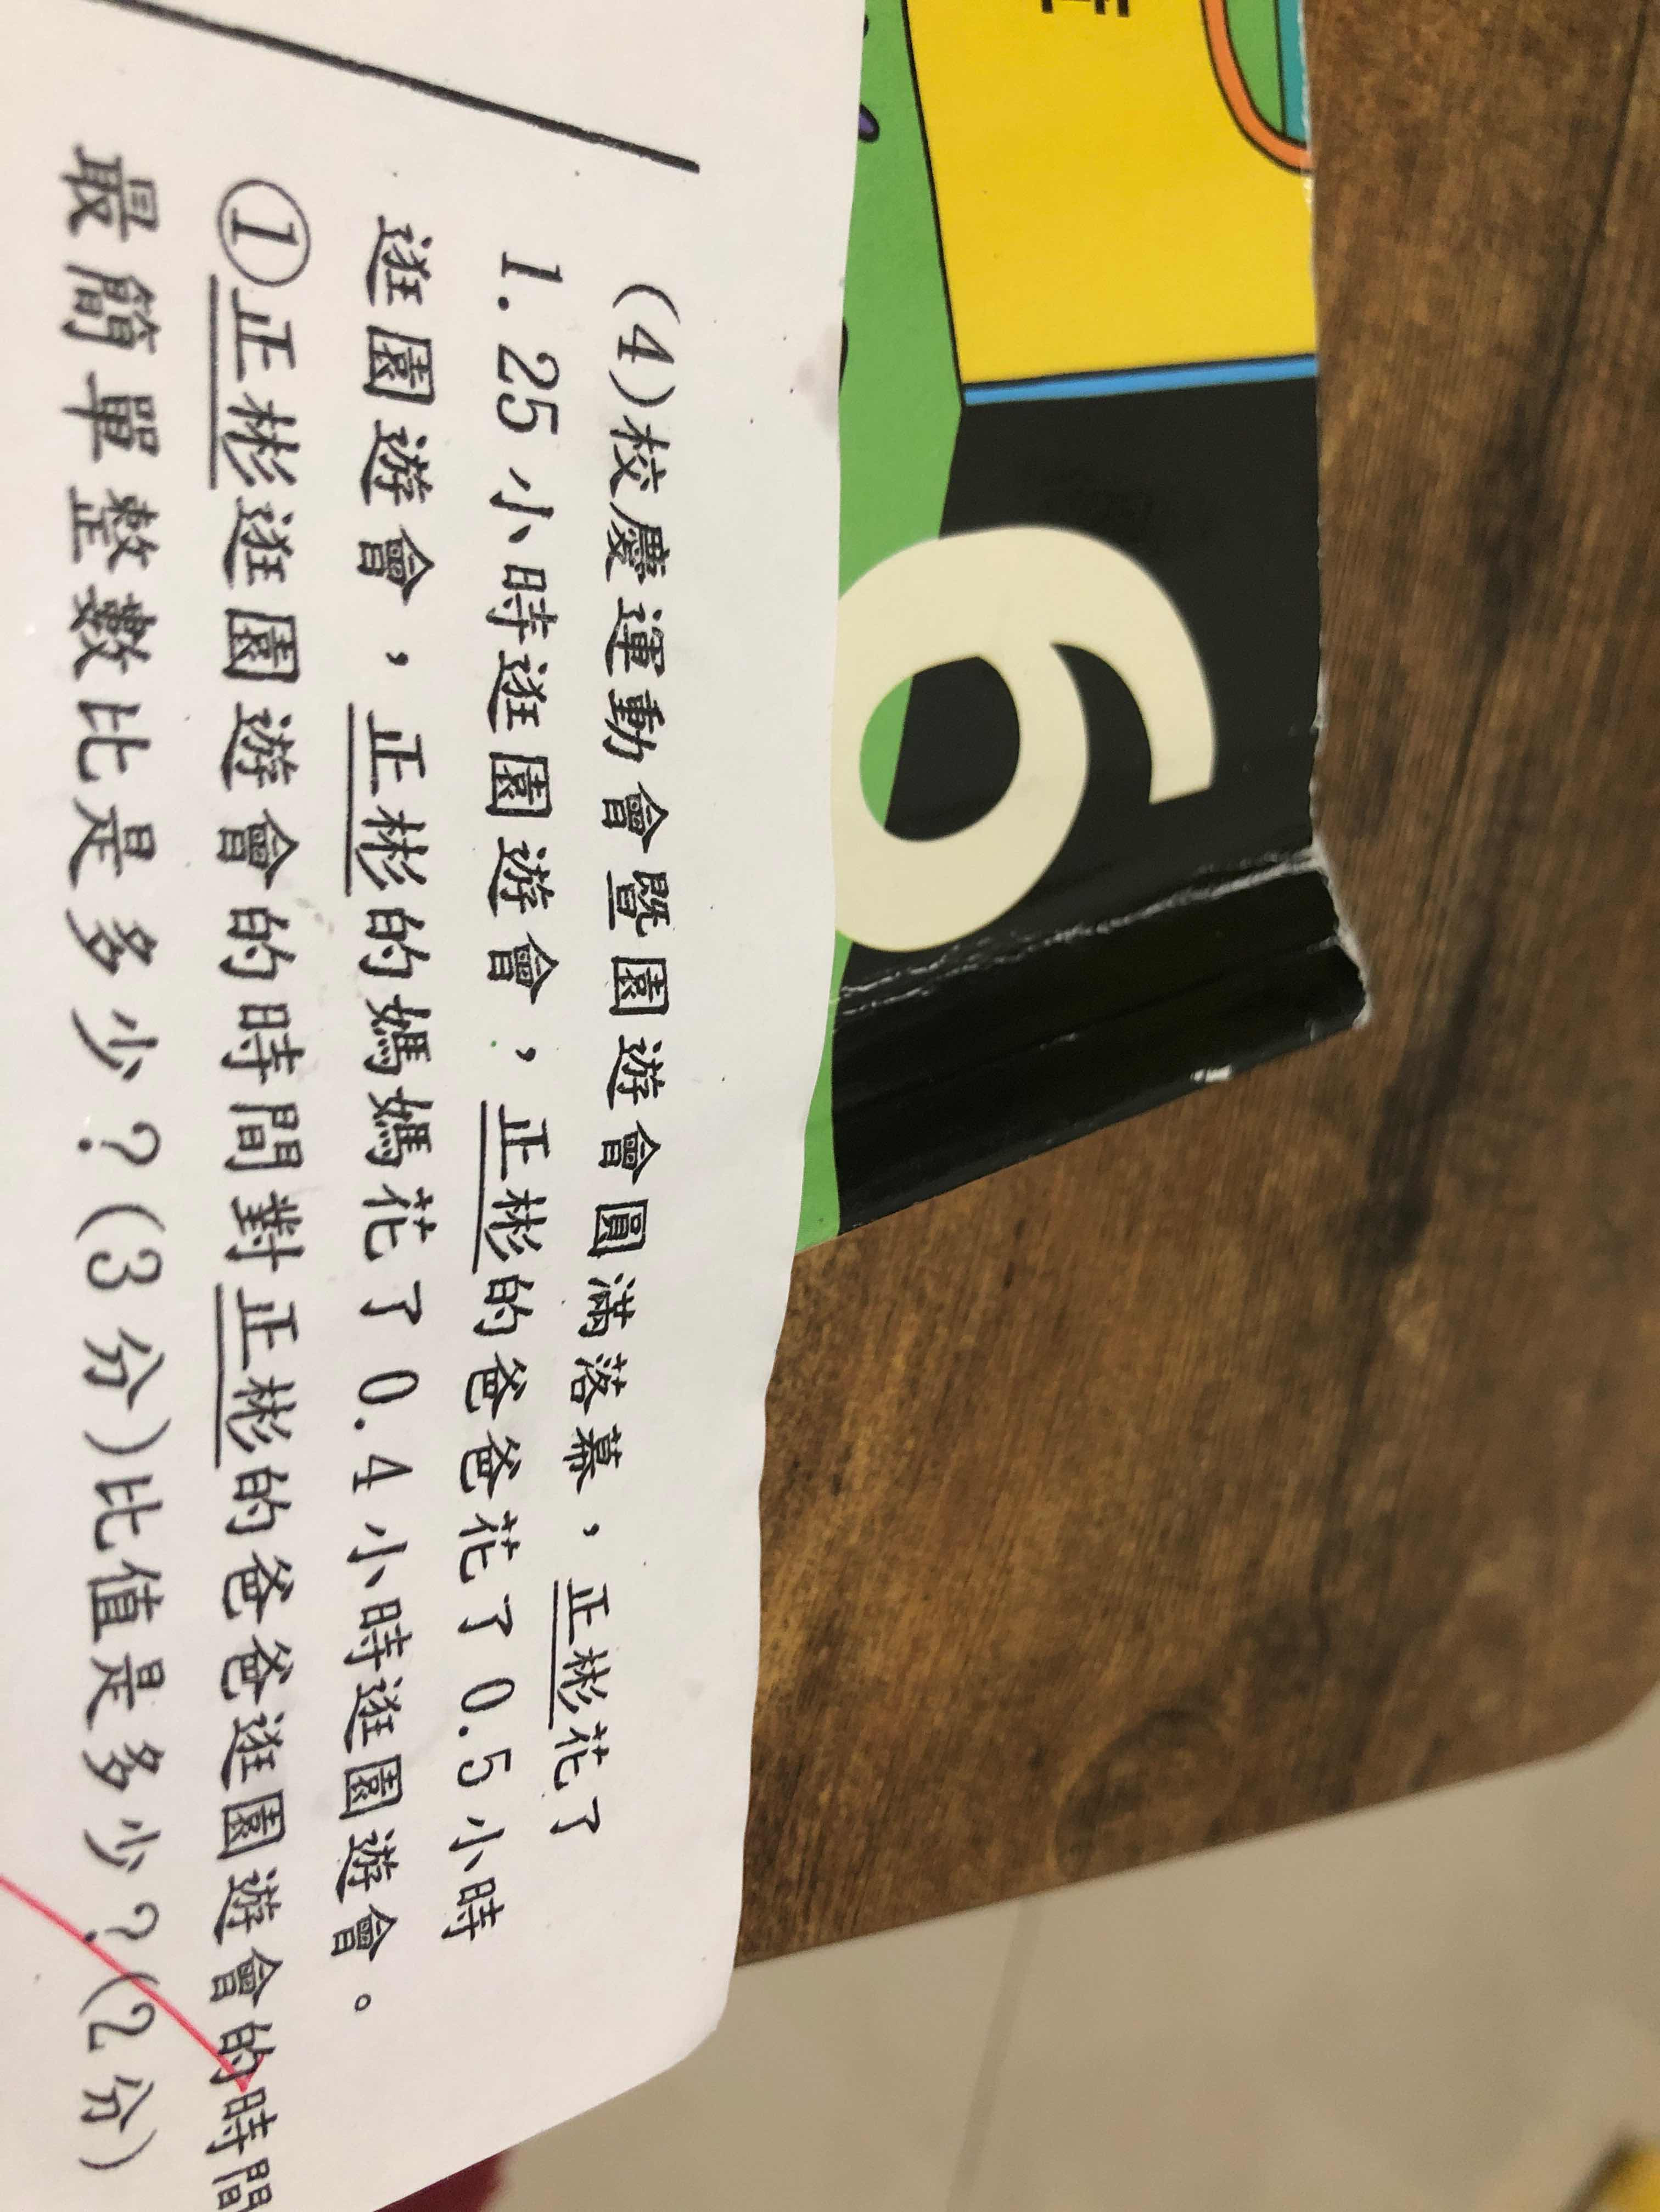 6
(4)校慶運動會暨園遊會圓滿落幕，正彬花了
1.25小時逛園遊會，正彬的爸爸花了0.5小時
逛園遊會，正彬的媽媽花了0.4小時逛園遊會。
①正彬逛園遊會的時間對正彬的爸爸逛園遊會的時間
最簡單整數比是多少？(3分)比值是多少？(2分)